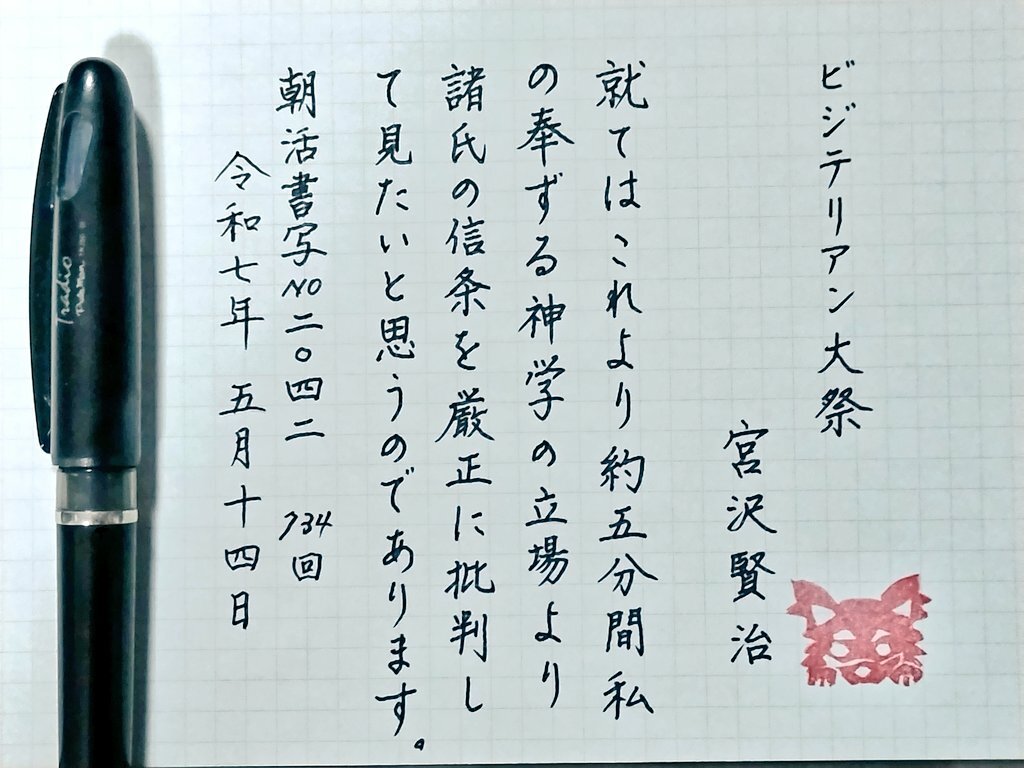 ビジテリアン大祭
宮沢賢治
就てはこれより約五分間私
の奉ずる神学の立場より
諸氏の信条を厳正に批判し
て見たいと思うのであります。
朝活書写NO二〇四二 734回
令和七年 五月十四日
radio